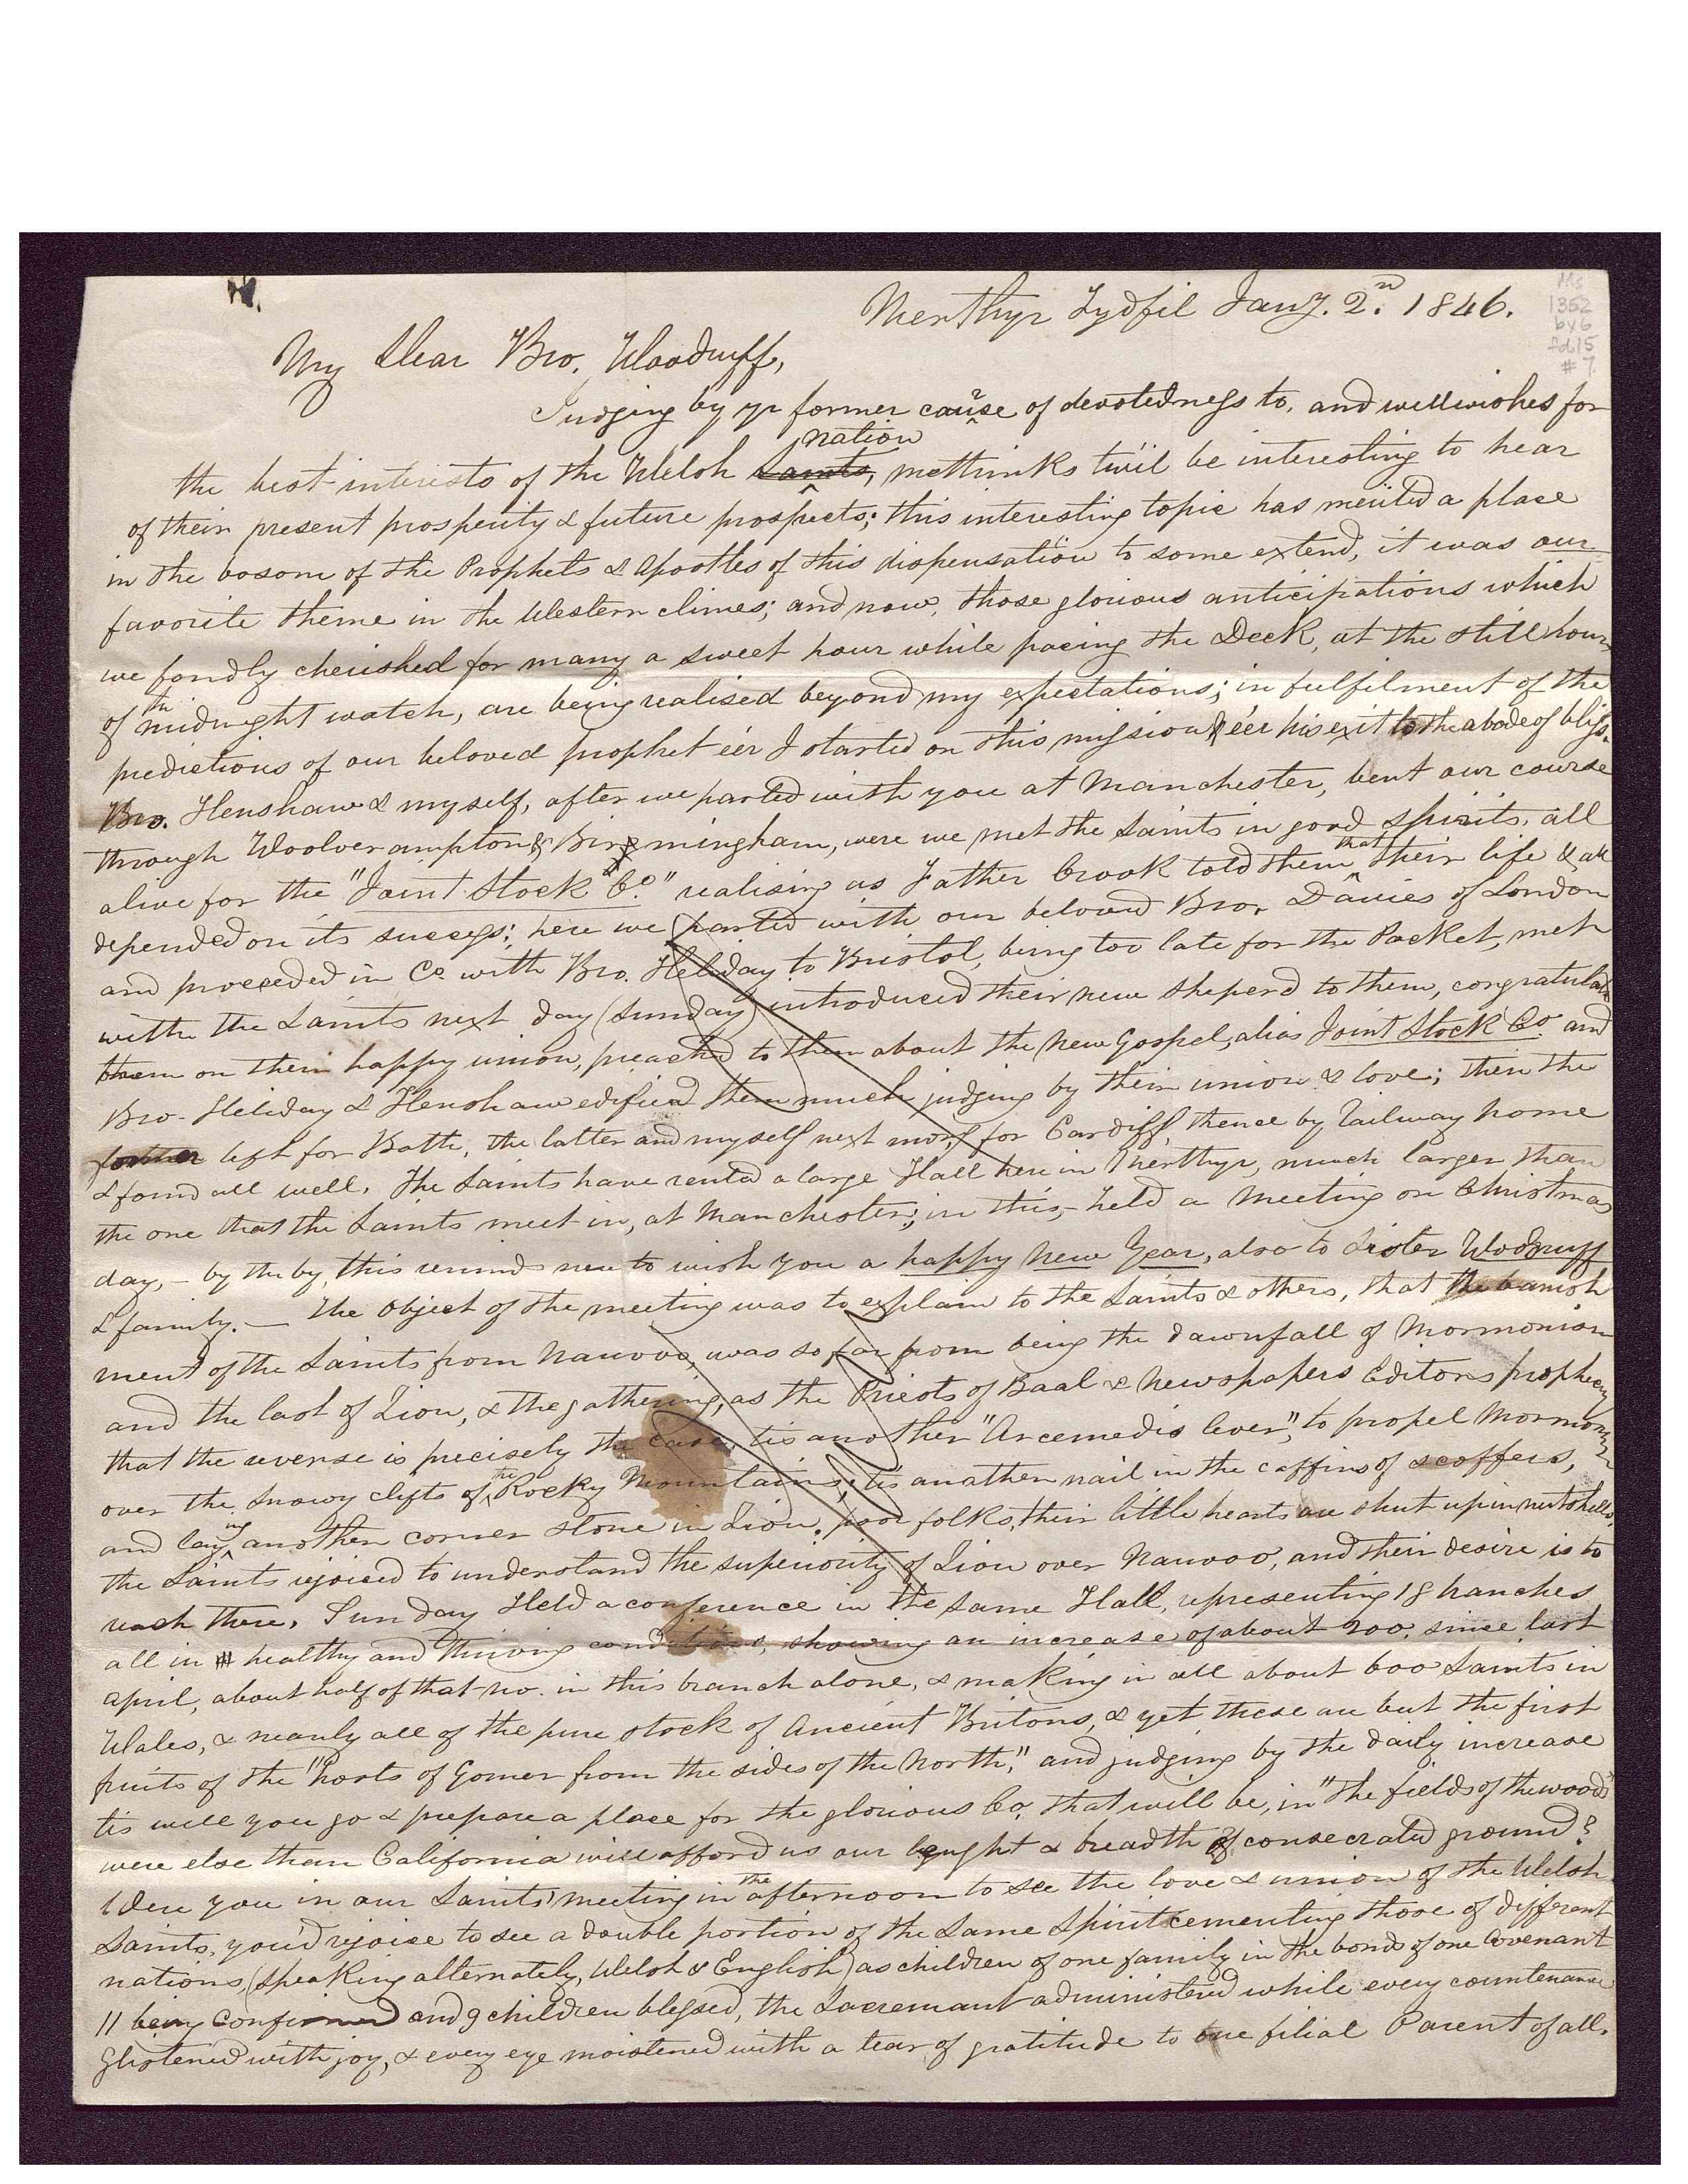 Ms
1352
bx6
fd15
#7
Merthyr Tydfil Jany. 2n. 1846.
My Dear Bro. Woodruff,
Judging by yr former cause of devotedness to, and wellwishes for
nation
the best interests of the Welsh Saints, methinks twil be interesting to hear
of their present prosperity & future prospects; this interesting topic has merited a place
in the bosom of the Prophets & Apostles of this dispensation to some extend, it was our
favorite theme in the Western climes; and now, those glorious anticipations which
we fondly cherished for many a sweet hour while pacing the Deck, at the still hour
of th midnight watch, are being realised beyond my expectations; in fulfilment of the
predictions of our beloved prophet e'er I started on this mission & e'er his exit to the abode of bliss.
Bro. Henshaw & myself, after we parted with you at Manchester, bent our course
through Woolverampton & Birmingham, were we met the Saints in good spirits, all
alive for the "Joint Stock Co." realising as Father Crook told them that their life & all
depended on its success; here we parted with our beloved Bro. Davies of London
and proceeded in Co. with Bro. Heliday to Bristol, being too late for the Packet, meh
with the Saints next day (Sunday) introduced their new sheperd to them, congratulated
them on their happy union, preached to them about the New Gospel, alias Joint Stock Co. and
Bro. Heliday & Henshaw edified them much judging by their union & love; then the
former left for Bath, the latter and myself next morng for Cardiff, thence by railway home
& found all well. The Saints have rented a large Hall here in Merthyr, much larger than
the one that the Saints meet in, at Manchester; in this, held a meeting on Christmas
day, – by the by, this reminds me to wish you a happy New Year, also to Sister Woodruff
& family. — The object of the meeting was to explain to the Saints & others, that the banish
ment of the Saints from Nauvoo, was so far from being the downfall of Mormonism
and the last of Zion, & the gathering, as the Priests of Baal & Newspapers Editors prophecy
that the reverse is precisely the case, tis another "Arcemedis lever," to propel Mormonism
over the snowy clifts of the Rocky Mountains; tis another nail in the coffins of scoffers,
and laying another corner stone in Zion. poor folks, their little hearts are shut up in nutshells,
the Saints rejoiced to understand the superiority of Zion over Nauvoo, and their desire is to
reach there. Sunday Held a conference in the same Hall, representing 18 branches
all in healthy and thriving conditions, showing an increase of about 200, since last
April, about half of that no. in this branch alone, & making in all about 600 Saints in
Wales, & nearly all of the pure stock of Ancient Britons, & yet these are but the first
fruits of the "hosts of Gomer from the sides of the North," and judging by the daily increase
tis well you go & prepare a place for the glorious Co. that will be, in "the fields of the wood"
were else than California will afford us our lenght & breadth of consecrated ground?
Were you in our Saints' meeting in the afternoon to see the love & union of the Welsh
Saints, you'd rejoice to see a double portion of the same Spirit cementing those of different
nations, (speaking alternately, Welsh & English) as children of one family in the bonds of one Covenant
11 being confirmed and 9 children blessed, the Sacremant administered while every countenance
glistened with joy, & every eye moistened with a tear of gratitude to one filial Parent of all.